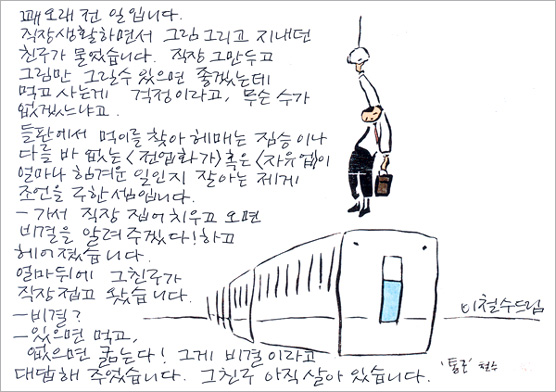 꽤 오래 전 일입니다.
직장생활하면서 그림그리고 지내던
친구가 물었습니다. 직장 그만두고
그림만 그릴수 있으면 좋겠는데
먹고 사는게 걱정이라고, 무슨 수가
없겠느냐고.
들판에서 먹이를 찾아 헤매는 짐승이나
다를 바 없는 <전업화가>혹은 <자유업>이
얼마나 힘겨운 일인지 잘아는 제게
조언을 구한 셈입니다.
- 가서 직장 집어 치우고 오면
비결을 알려 주겠다! 하고
헤어졌습니다.
얼마뒤에 그친구가
직장 접고 왔습니다.
- 비결?
- 있으면 먹고,
없으면 굶는다! 그게 비결이라고
대답해 주었습니다. 그친구 아직 살아 있습니다.
이철수드림
'통근' 철수